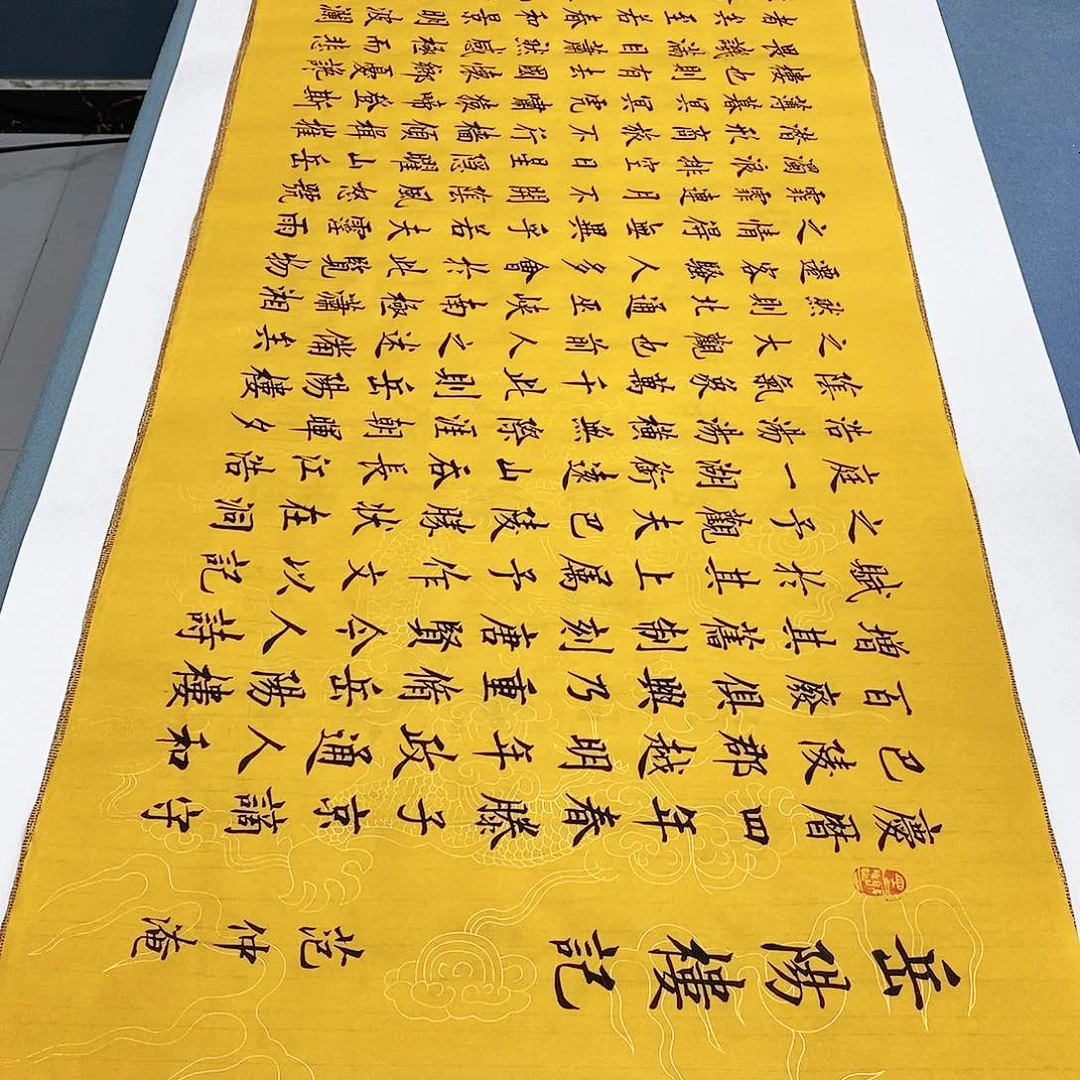 岳陽樓記 范仲淹
慶曆四年春滕子京謫守
巴陵郡越明年政通人和
百廢俱興乃重脩岳陽樓
增其舊制刻唐賢今人詩
賦於其上属予作文以記
之予觀夫巴陵勝狀在洞
庭一湖銜遠山吞長江浩
浩湯湯橫無際涯朝暉夕
陰氣象萬千此則岳陽樓
之大觀也前人之述備矣
然則北通巫峽南極瀟湘
遷客騷人多會於此覽物
之情得無異乎若夫霪雨
霏霏連月不開陰風怒號
濁浪排空日星隱曜山岳
潛形商旅不行檣傾楫摧
薄暮冥冥虎嘯猿啼登斯
樓也則有去國懷鄉憂讒
畏譏滿目蕭然感極而悲
者矣至若春和景明波瀾